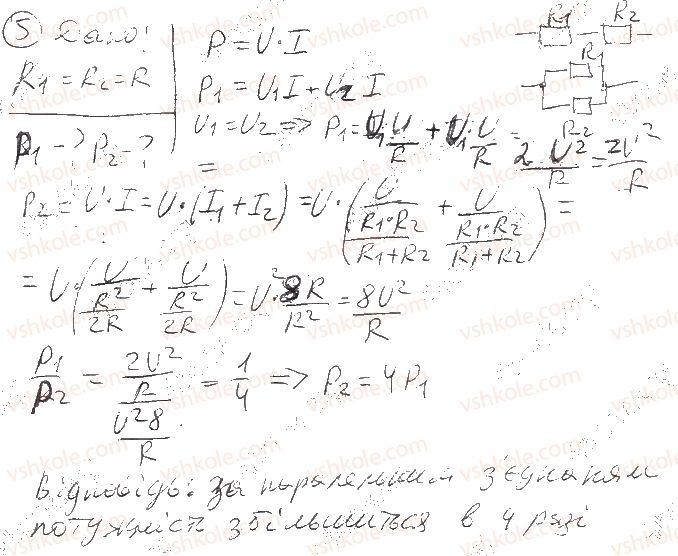 5 Дано:
R1 = R2 = R
P1 - ? P2 - ?
P = U · I
P1 = U1I + U2I
U1 = U2 => P1 = U1U/R + U1U/R =
= 2U²/R = 2U²/R
R1 R2
R1
R2
P2 = U · I = U · (I1 + I2) = U · (U/(R1·R2/(R1+R2)) + U/(R1·R2/(R1+R2))) =
= U · (U/(R²/2R) + U/(R²/2R)) = U² · 8R/R² = 8U²/R
P1/P2 = (2U²/R)/(U²8/R) = 1/4 => P2 = 4P1
Відповідь: за паралельним з'єднаням
потужність збільшиться в 4 разі
vshkole.com